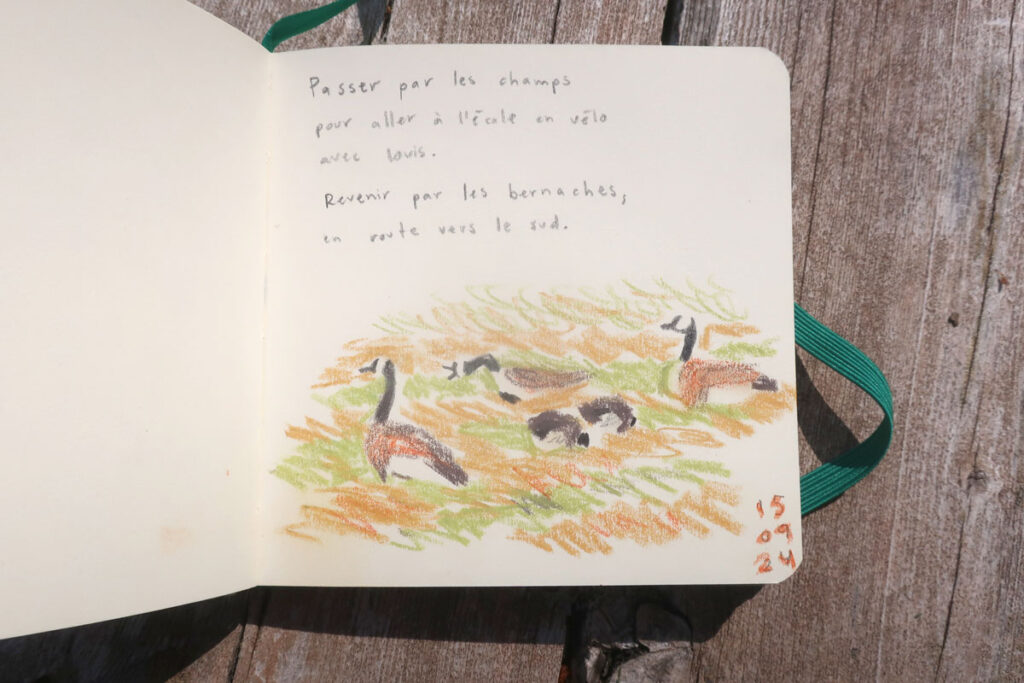 Passer par les champs
pour aller à l'école en vélo
avec Louis.
Revenir par les bernaches,
en route vers le sud.
15
09
24